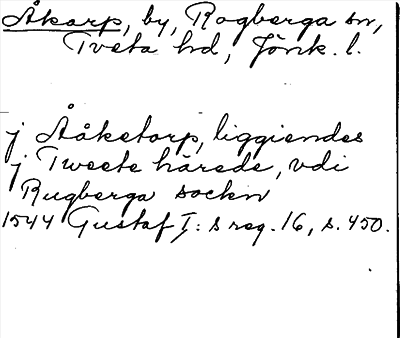 Åkarp, by, Rogberga sn,
Tveta hd, Jönk. l.
j Ååketorp, liggiendes
j Tweete härede, vdi
Rugberga sockn
1544 Gustaf I:s reg. 16, s. 450.